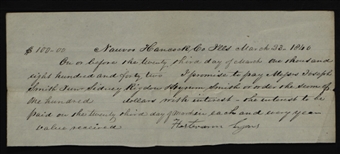 $100.00 Nauvoo Hancock Co Ills March 23 1840
On or before the twenty third day of March one thousand
eight hundred and forty two I promise to pay Mssrs Joseph
Smith Junr Sidney Rigdon & Hyrum Smith or order the sum of
One hundred dollars with interest the interest to be
paid on the twenty third day of March in each and every year
value received